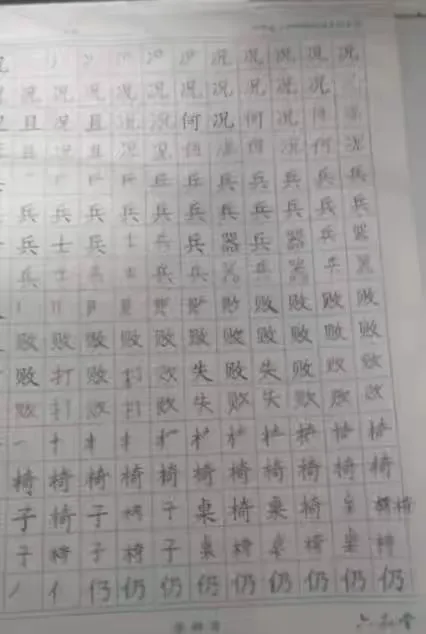 况 况 况 况 况
况 况 况 况 况 况 况 况 况 况
且 况 且 况 况 何 况 何 况 何 况
且 况 且 况 况 何 况 何 况 何 况
兵 兵 兵 兵 兵 兵 兵
兵 兵 兵 兵 兵 兵 兵 兵 兵 兵 兵
兵 士 兵 士 兵 兵 器 兵 器 兵 器
兵 士 兵 士 兵 兵 器 兵 器 兵 器
败 败 败 败 败 败
败 败 败 败 败 败 败 败 败 败 败
败 打 败 打 败 失 败 失 败 败 败
败 打 败 打 败 失 败 失 败 败 败
椅 椅 椅 椅 椅 椅 椅 椅 椅 椅 椅
子 椅 子 椅 子 桌 椅 桌 椅 桌 椅
子 椅 子 椅 子 桌 椅 桌 椅 桌
仍 仍 仍 仍 仍 仍 仍 仍 仍